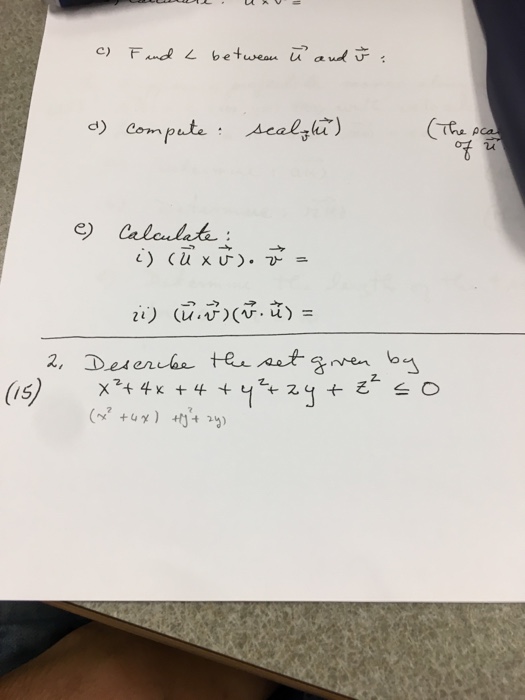 c) Find ∠ between u⃗ and v⃗ :
d) compute : scal_v⃗(u⃗) (The
of u⃗
e) Calculate :
i) (u⃗ x v⃗) · v⃗ =
ii) (u⃗ . v⃗)(v⃗ . u⃗) =
2, Describe the set given by
(15) x² + 4x + 4 + y² + 2y + z² ≤ 0
(x² + 4x) + (y² + 2y)